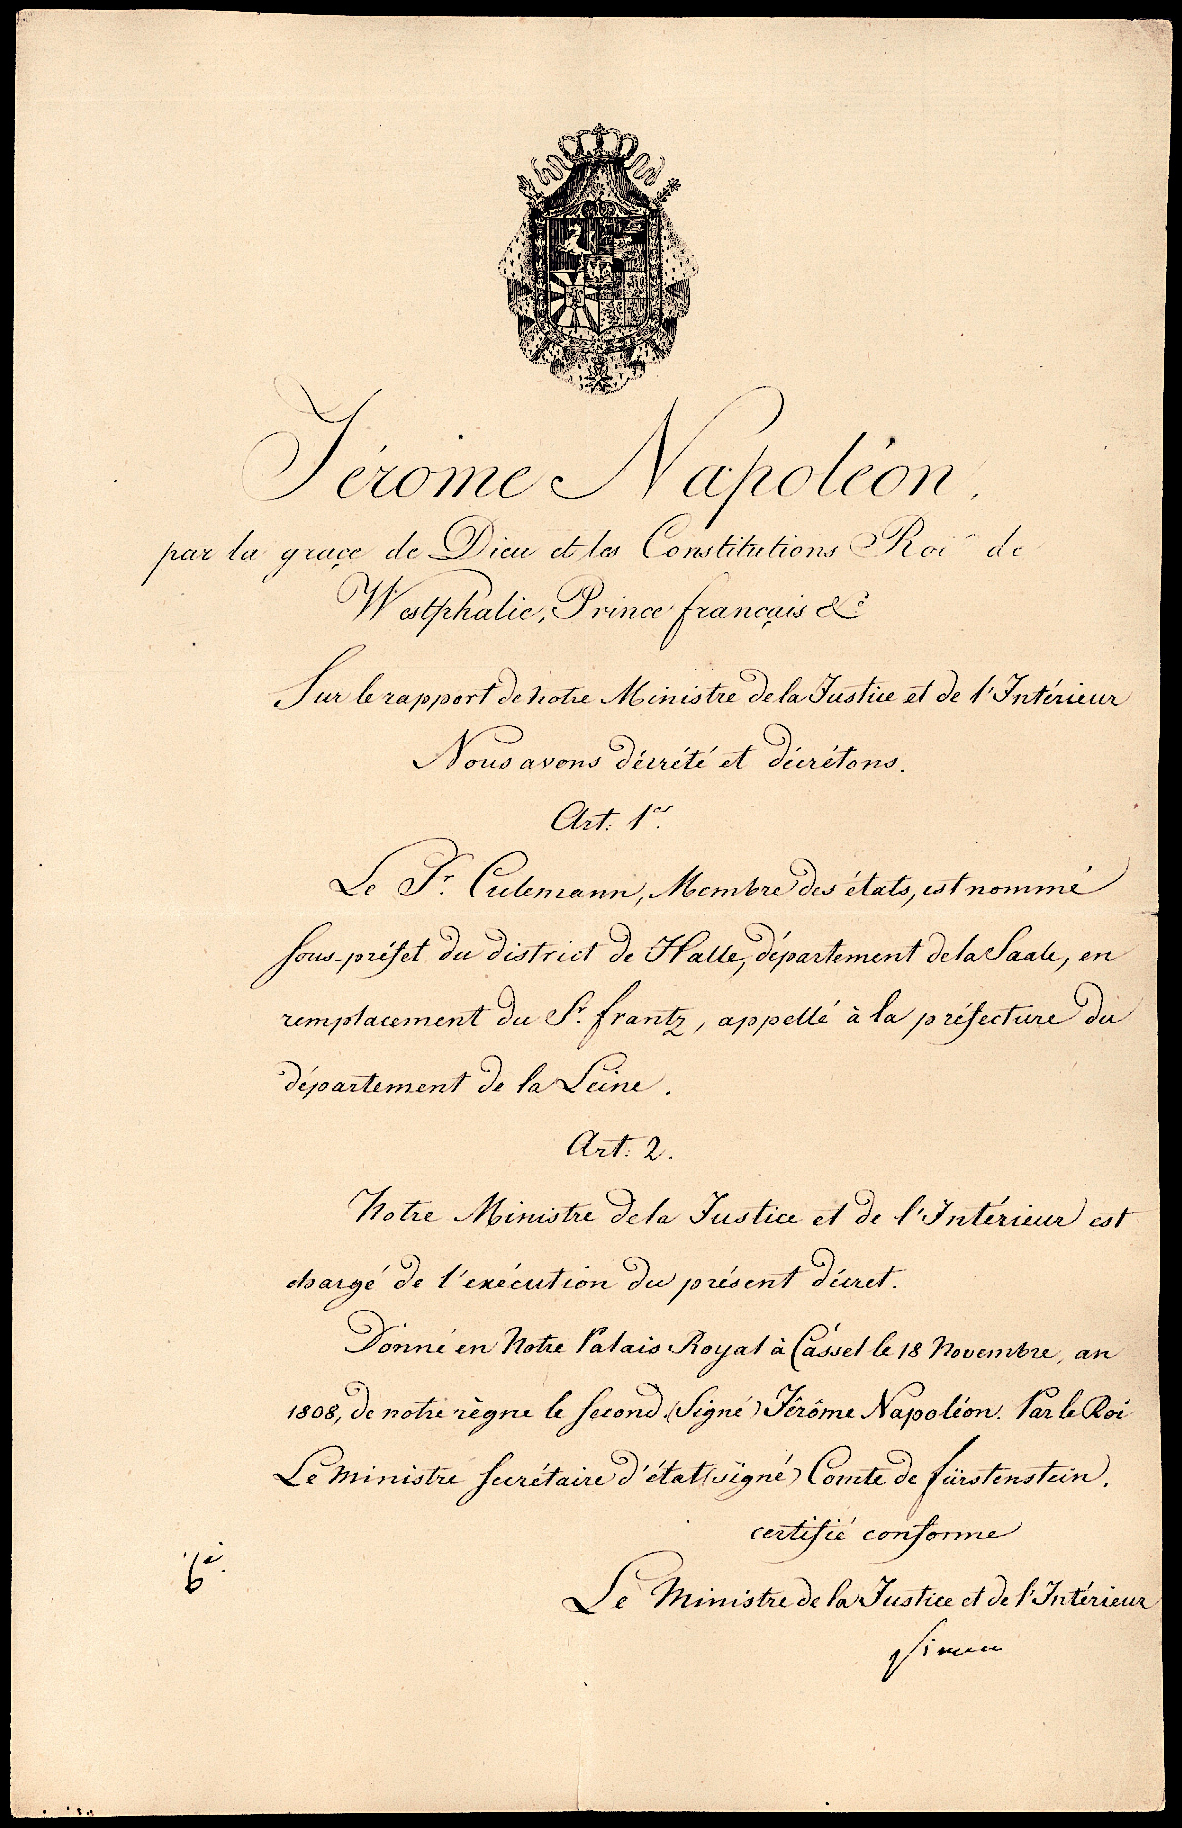 Jérome Napoléon,
par la graçe de Dieu et les Constitutions Roi de
Westphalie, Prince français &c
Sur le rapport de notre Ministre de la Justice et de l'Intérieur
Nous avons décrété et décrétons.
Art: 1er.
Le Sr. Culemann, Membre des états, est nommé
sous-préfet du district de Halle, département de la Saale, en
remplacement du Sr. frantz, appellé à la préfecture du
département de la Leine.
Art: 2.
Notre Ministre de la Justice et de l'Intérieur est
chargé de l'exécution du présent décret.
Donné en Notre Palais Royal à Cassel le 18 Novembre, an
1808, de notre règne le second (Signé) Jérôme Napoléon. Par le Roi
Le Ministre secrétaire d'état (signé) Comte de fürstenstein.
certifié conforme
Le Ministre de la Justice et de l'Intérieur
Simeon